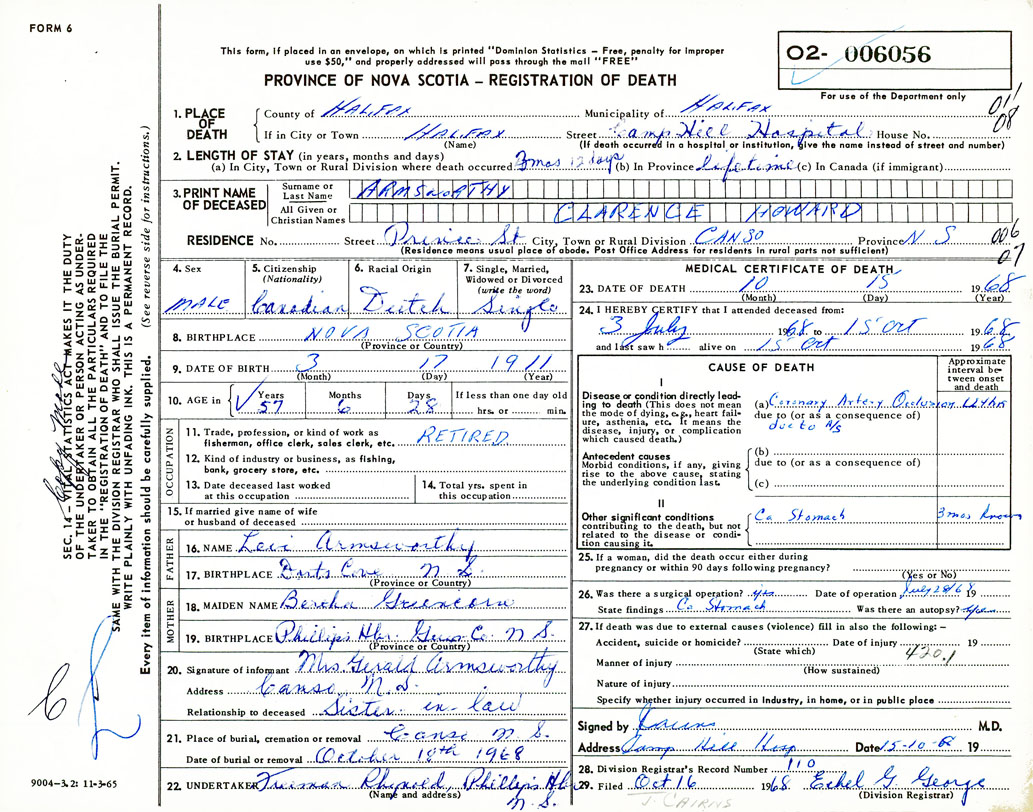 FORM 6
This form, if placed in an envelope, on which is printed "Dominion Statistics – Free, penalty for improper
use $50," and properly addressed will pass through the mail "FREE"
O2- 006056
PROVINCE OF NOVA SCOTIA – REGISTRATION OF DEATH
For use of the Department only
011
08
1. PLACE OF DEATH
County of HALIFAX Municipality of HALIFAX
If in City or Town HALIFAX Street Camp Hill Hospital House No.
(Name) (If death occurred in a hospital or institution, give the name instead of street and number)
2. LENGTH OF STAY (in years, months and days)
(a) In City, Town or Rural Division where death occurred 3mos 12 days (b) In Province lifetime (c) In Canada (if immigrant)
3. PRINT NAME OF DECEASED
Surname or Last Name ARMSWORTHY
All Given or Christian Names CLARENCE HOWARD
RESIDENCE No. Street Prince St City, Town or Rural Division CANSO Province N S
(Residence means usual place of abode. Post Office Address for residents in rural parts not sufficient)
006
07
4. Sex
MALE
5. Citizenship
(Nationality)
Canadian
6. Racial Origin
Dutch
7. Single, Married,
Widowed or Divorced
(write the word)
Single
8. BIRTHPLACE NOVA SCOTIA
(Province or Country)
9. DATE OF BIRTH 3 17 1911
(Month) (Day) (Year)
10. AGE in
Years Months Days If less than one day old
57 6 28 hrs. or min.
OCCUPATION
11. Trade, profession, or kind of work as
fisherman, office clerk, sales clerk, etc. RETIRED
12. Kind of industry or business, as fishing,
bank, grocery store, etc.
13. Date deceased last worked
at this occupation
14. Total yrs. spent in
this occupation
15. If married give name of wife
or husband of deceased
FATHER
16. NAME Levi Armsworthy
17. BIRTHPLACE Dorts Cove N S
(Province or Country)
MOTHER
18. MAIDEN NAME Bertha Greencorn
19. BIRTHPLACE Phillips Hbr. Guys Co N S.
(Province or Country)
20. Signature of informant Mrs Gerald Armsworthy
Address Canso N.S.
Relationship to deceased Sister-in-law
21. Place of burial, cremation or removal Canso N S.
Date of burial or removal October 18th 1968
22. UNDERTAKER Freeman Rhynold, Phillips Hbr
(Name and address)
N. S.
MEDICAL CERTIFICATE OF DEATH
23. DATE OF DEATH 10 15 1968
(Month) (Day) (Year)
24. I HEREBY CERTIFY that I attended deceased from:
3 July 1968 to 15 Oct 1968
and last saw h alive on 15 Oct 1968
CAUSE OF DEATH
Approximate
interval be-
tween onset
and death
I
Disease or condition directly lead-
ing to death (This does not mean
the mode of dying, e.g., heart fail-
ure, asthenia, etc. It means the
disease, injury, or complication
which caused death.)
(a) Coronary Artery Occlusion
due to (or as a consequence of)
due to A/S
Antecedent causes
Morbid conditions, if any, giving
rise to the above cause, stating
the underlying condition last.
(b)
due to (or as a consequence of)
(c)
II
Other significant conditions
contributing to the death, but not
related to the disease or condi-
tion causing it.
Ca Stomach 3 mos known
25. If a woman, did the death occur either during
pregnancy or within 90 days following pregnancy?
(Yes or No)
26. Was there a surgical operation? yes Date of operation July 28/68 19
State findings Ca Stomach Was there an autopsy? yes
27. If death was due to external causes (violence) fill in also the following: –
Accident, suicide or homicide? Date of injury 19
(State which)
420.1
Manner of injury
(How sustained)
Nature of injury
Specify whether injury occurred in Industry, in home, or in public place
Signed by M.D.
Address Camp Hill Hosp Date 15-10-68 19
28. Division Registrar's Record Number 110
29. Filed Oct 16 1968 Ethel G George
(Division Registrar)
J. CAIRNS
SEC. 14 – VITAL STATISTICS ACT MAKES IT THE DUTY
OF THE UNDERTAKER OR PERSON ACTING AS UNDER-
TAKER TO OBTAIN ALL THE PARTICULARS REQUIRED
IN THE "REGISTRATION OF DEATH" AND TO FILE THE
SAME WITH THE DIVISION REGISTRAR WHO SHALL ISSUE THE BURIAL PERMIT.
WRITE PLAINLY WITH UNFADING INK. THIS IS A PERMANENT RECORD.
Every item of information should be carefully supplied. (See reverse side for instructions.)
C
9004-3.2: 11-3-65